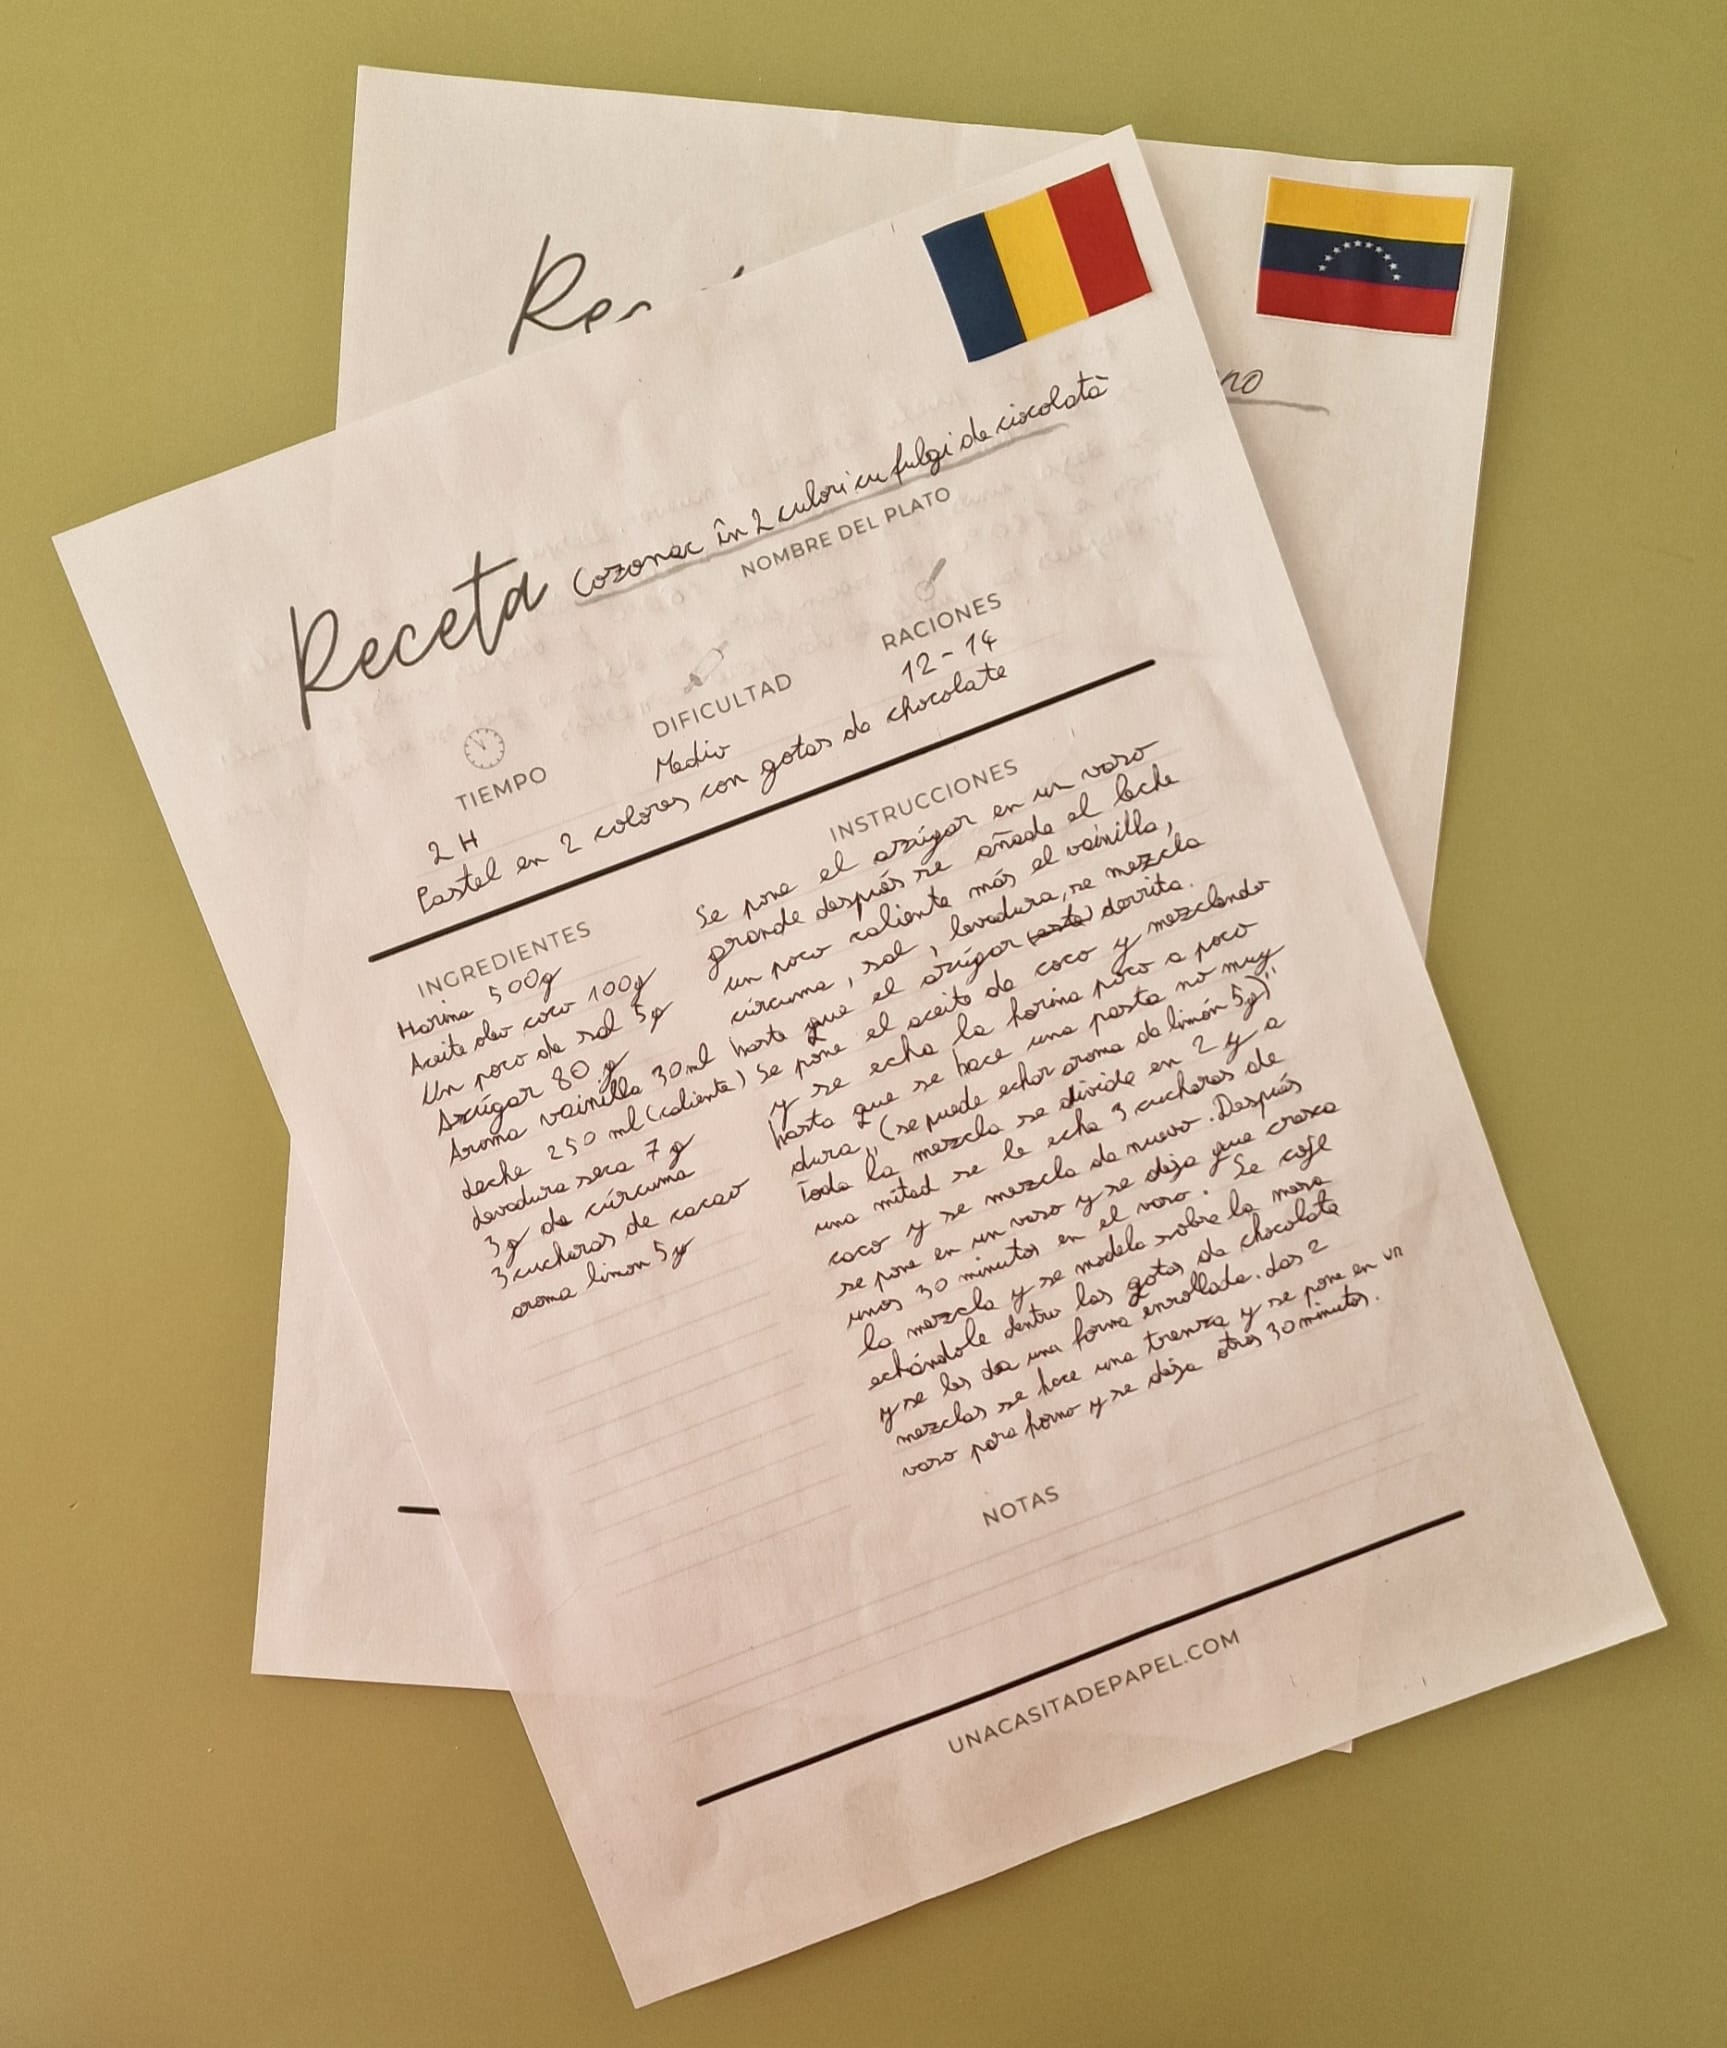 Receta Cozonac în 2 culori cu fulgi de ciocolată
NOMBRE DEL PLATO
TIEMPO
2 H
DIFICULTAD
Medio
RACIONES
12 - 14
Pastel en 2 colores con gotas de chocolate
INGREDIENTES
Harina 500g
Aceite de coco 100g
Un poco de sal 5g
Azúgar 80 g
Aroma vainilla 30ml
Leche 250 ml (caliente)
Levadura seca 7 g
3g de cúrcuma
3 cucharas de cacao
aroma limon 5g
INSTRUCCIONES
Se pone el azúgar en un vaso
grande después se añade el leche
un poco caliente más el vainilla,
cúrcuma, sal, levadura, se mezcla
hasta que el azúgar derrita.
Se pone el aceite de coco y mezclando
y se echa la horina poco a poco
hasta que se hace una pasta no muy
dura" (se puede echar aroma de limón 5g)"
Toda la mezcla se divide en 2 y a
una mitad se le echa 3 cucharas de
coco y se mezcla de nuevo. Después
se pone en un vaso y se deja que crezca
unos 30 minutos en el vaso. Se coje
la mezcla y se modela sobre la mesa
echándole dentro las gotas de chocolate
y se les da una forma enrollada. Las 2
mezclas se hace una trenza y se pone en un
vaso para horno y se deja otros 30 minutos.
NOTAS
UNACASITADEPAPEL.COM